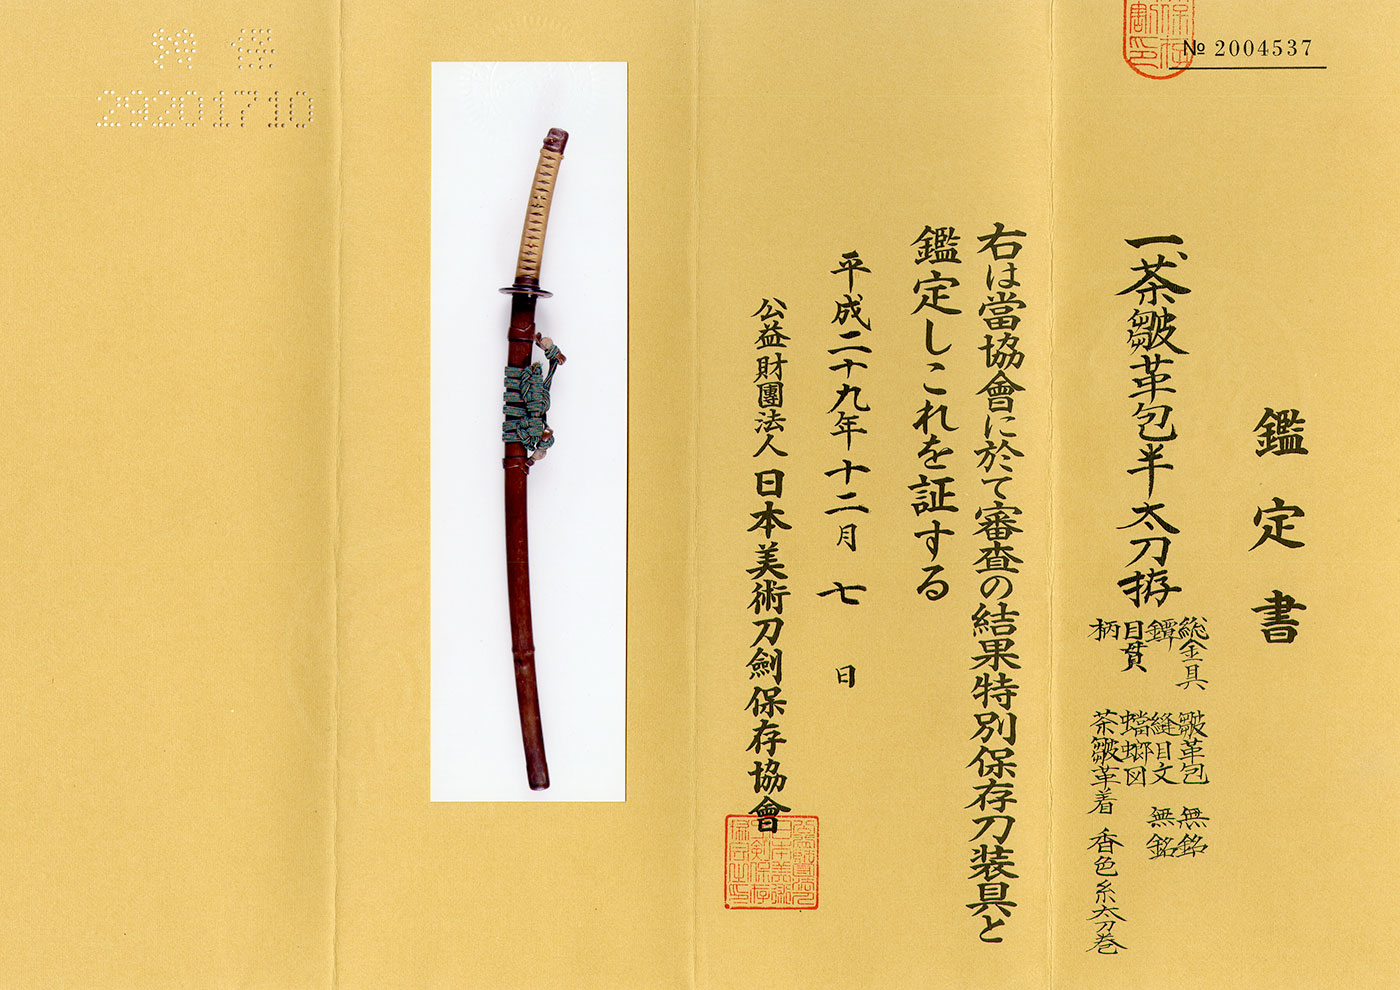 № 2004537
鑑定書
一、茶皺革包半太刀拵
総金具 皺革包 無銘
鐔 縫目文 無銘
目貫 蟷螂図
柄 茶皺革着 香色糸太刀巻
右は當協會に於て審査の結果特別保存刀装具と
鑑定しこれを証する
平成二十九年十二月七日
公益財團法人日本美術刀劍保存協會
29201710